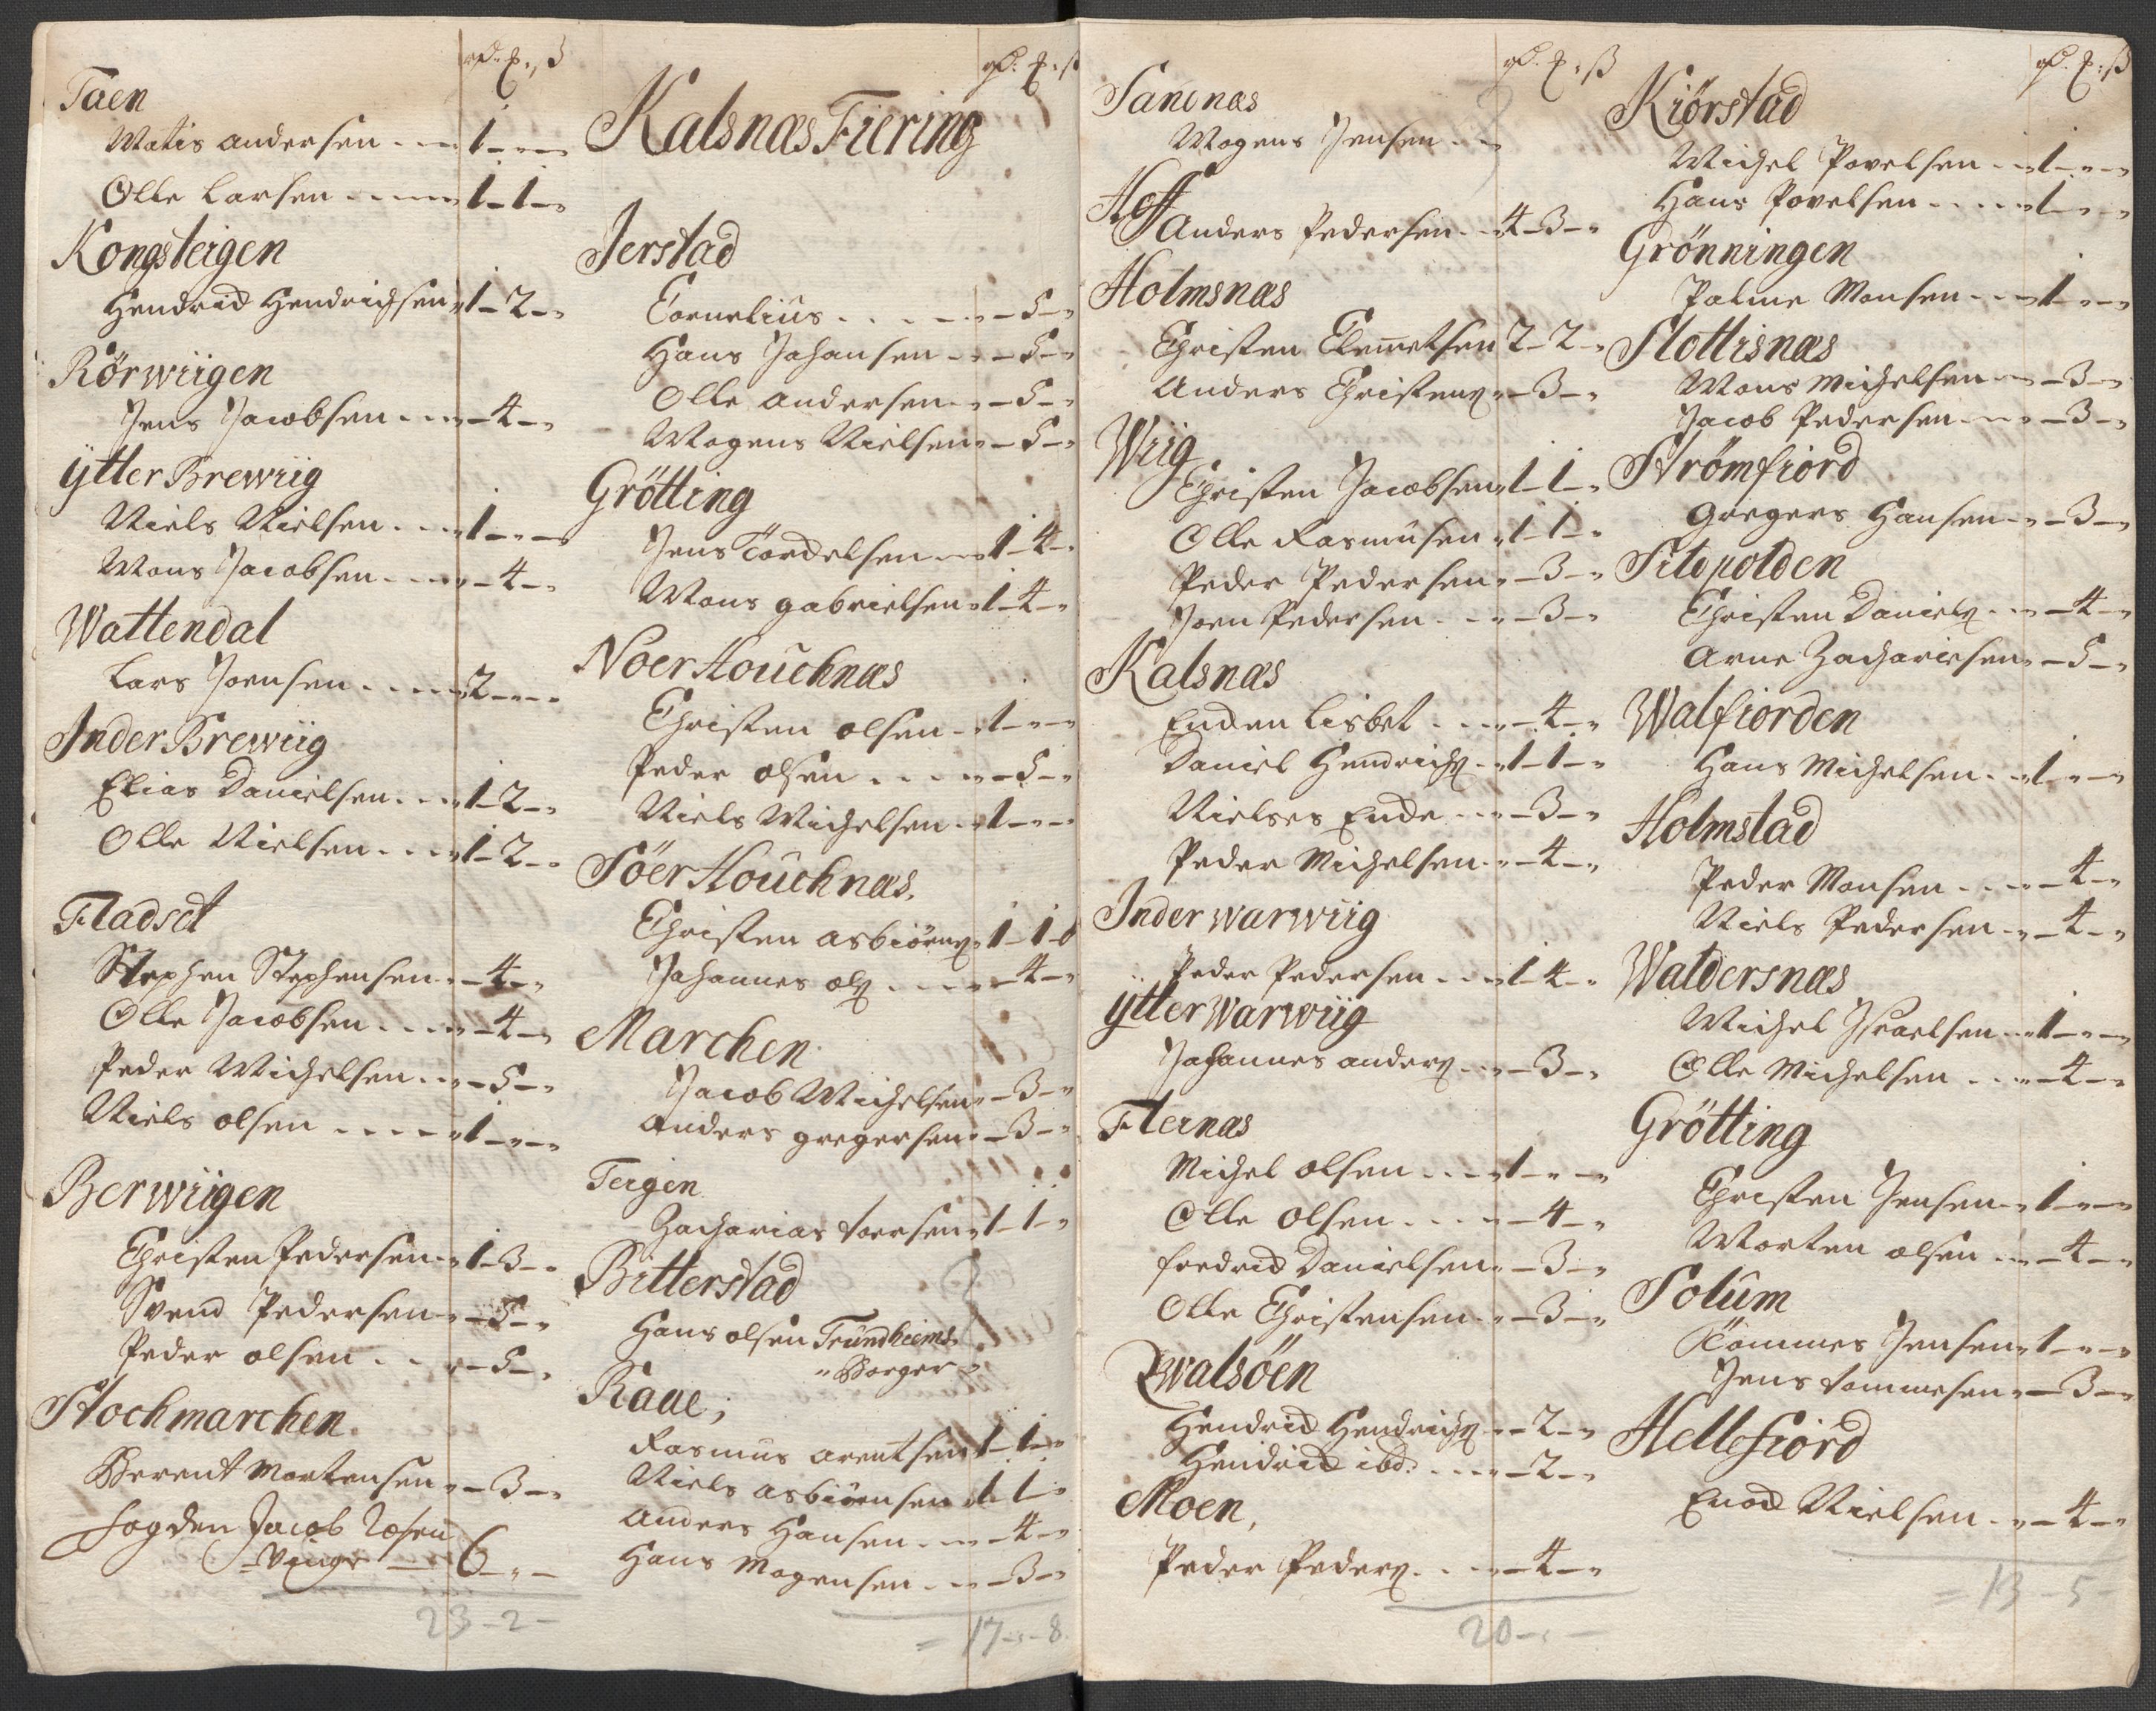 rd. ȝ. ß
Taen
Matis Andersen - - - 1 - - -
Olle Larsen - - - - 1 - 1 -
Kongsteigen
Hendrich Hendrichsen 1 - 2 -
Rörwiigen
Jens Jacobsen - - - - 4 -
Ytter Brewiig
Niels Nielsen - - - 1 - - -
Mons Jacobsen - - - - 4 -
Wattendal
Lars Joensen - - - - 2 - - -
Inder Brewiig
Elias Danielsen - - - 1 - 2 -
Olle Nielsen - - - 1 - 2 -
Fladset
Stephen Stephensen - - 4 -
Olle Jacobsen - - - - 4 -
Peder Michelsen - - - 5 -
Niels Olsen - - - - 1 - - -
Berwiigen
Christen Pedersen - 1 - 3 -
Svend Pedersen - - 5 -
Peder Olsen - - - - 5 -
Stochmarchen
Berent Mortensen - - 3 -
Fogden Jacob
6 - - -
23 - 2 -
rd. ȝ. ß
Kalsnæs Fiering
Jerstad
Cornelius - - - - - 5 -
Hans Johansen - - - 5 -
Olle Andersen - - - 5 -
Mogens Nielsen - - 5 -
Grötting
Jens Tordelsen - - 1 - 4 -
Mons Gabrielsen - 1 - 4 -
Noer Houchnæs
Christen Olsen - - 1 - - -
Peder Olsen - - - - - 5 -
Niels Michelsen - - 1 - - -
Söer Houchnæs.
Christen Asbiörns: 1 - 1 - 8
Johannes Ols: - - - - 4 -
Marchen
Jacob Michelsen - - 3 -
Anders Gregersen - - 3 -
Teigen
Zacharias Toersen - 1 - 1 -
Bitterstad
Hans Olsen Trundheims
Borger -
Raae;
Rasmus Arentsen 1 - 1 -
Niels Asbiörnsen 1 - 1 -
Anders Hansen - - - 4 -
Hans Mogensen - - - 3 -
= 17 - - 8.
rd. ȝ. ß
Sandnæs
Mogens Jensen - -
Hoff
Anders Pedersen - - 4 - 3 -
Holmsnæs
Christen Clemmetsen 2 - 2 -
Anders Christens: - - 3 -
Wiig
Christen Jacobsen - 1 - 1 -
Olle Rasmusen - 1 - 1 -
Peder Pedersen - - 3 -
Joen Pedersen - - - 3 -
Kalsnæs
Enchen Lisbet - - - 4 -
Daniel Hendrichs: - 1 - 1 -
Nielses Enche - - - 3 -
Peder Michelsen - - 4 -
Inder Warwiig
Peder Pedersen - - - 1 - 4 -
Ytter Warwiig
Johannes Anders: - - - 3 -
Fleinæs
Michel Olsen - - - - 1 - - -
Olle Olsen - - - - - 4 -
Fredrich Danielsen - - 3 -
Olle Christensen - - 3 -
Qwalsöen
Hendrich Hendrichs: - - 2 -
Hendrich ibd: - - - - 2 -
Moen,
Peder Peders: - - - - 4 -
20 - - -
rd. ȝ. ß
Kiörstad
Michel Povelsen - - 1 - - -
Hans Povelsen - - - 1 - - -
Grönningen
Palme Monsen - - - 1 - - -
Slottisnæs
Mons Michelsen - - - 3 -
Jacob Pedersen - - - 3 -
Strömfiord
Gregers Hansen - - 3 -
Sildpolden
Christen Daniels: - - - 4 -
Arne Zachariesen - - 5 -
Walfiorden
Hans Michelsen - - 1 - - -
Holmstad
Peder Monsen - - - - 4 -
Niels Pedersen - - 4 -
Waldersnæs
Michel Israelsen - - 1 - - -
Olle Michelsen - - - 4 -
Grötting
Christen Jensen - - 1 - - -
Morten Olsen - - - 4 -
Solum
Tommes Jensen - 1 - - -
Jens Tommesen - - 3 -
Hellefiord
Enoch Nielsen - - - 4 -
= 13 - 5 -